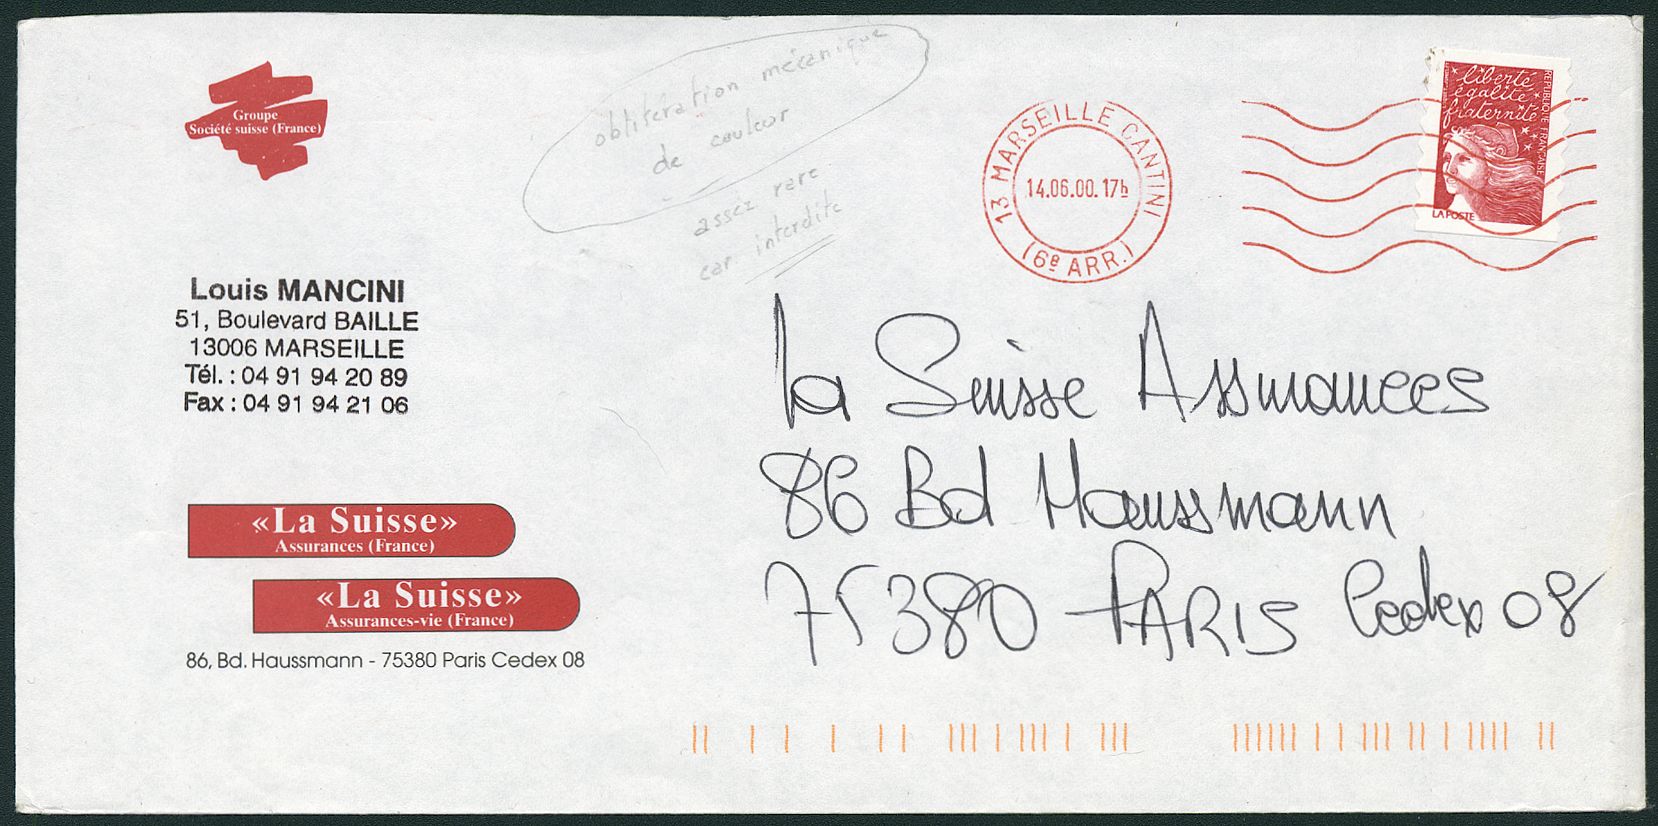 Groupe
Société suisse (France)
oblitération mécanique
de couleur
assez rare
car interdite
13 MARSEILLE CANTINI
14.06.00.17h
(6e ARR.)
liberté
égalité
fraternité
REPUBLIQUE FRANÇAISE
LA POSTE
Louis MANCINI
51, Boulevard BAILLE
13006 MARSEILLE
Tél. : 04 91 94 20 89
Fax : 04 91 94 21 06
La Suisse Assurances
86 Bd Haussmann
75380 PARIS Cedex 08
«La Suisse»
Assurances (France)
«La Suisse»
Assurances-vie (France)
86, Bd. Haussmann - 75380 Paris Cedex 08